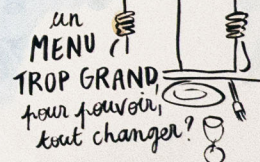 un
MENU
TROP GRAND
pour pouvoir,
tout changer?